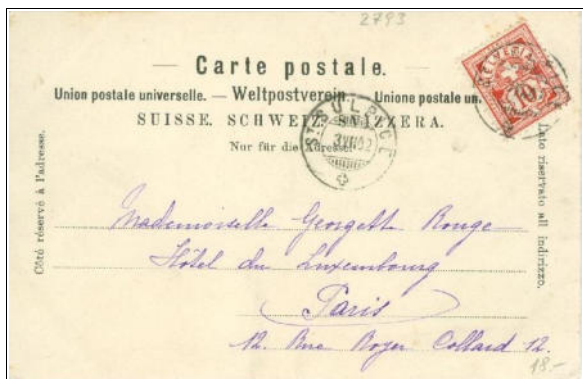 2793
— Carte postale. —
Union postale universelle. — Weltpostverein. — Unione postale un.
SUISSE. SCHWEIZ. SVIZZERA.
Nur für die Adresse.
ST SULPICE
Côté réservé à l'adresse.
Lato riservato all indirizzo.
HELVETIA
10
Mademoiselle Georgette Rouge
Hôtel du Luxembourg
Paris
12. Rue Royer Collard 12.
18.-